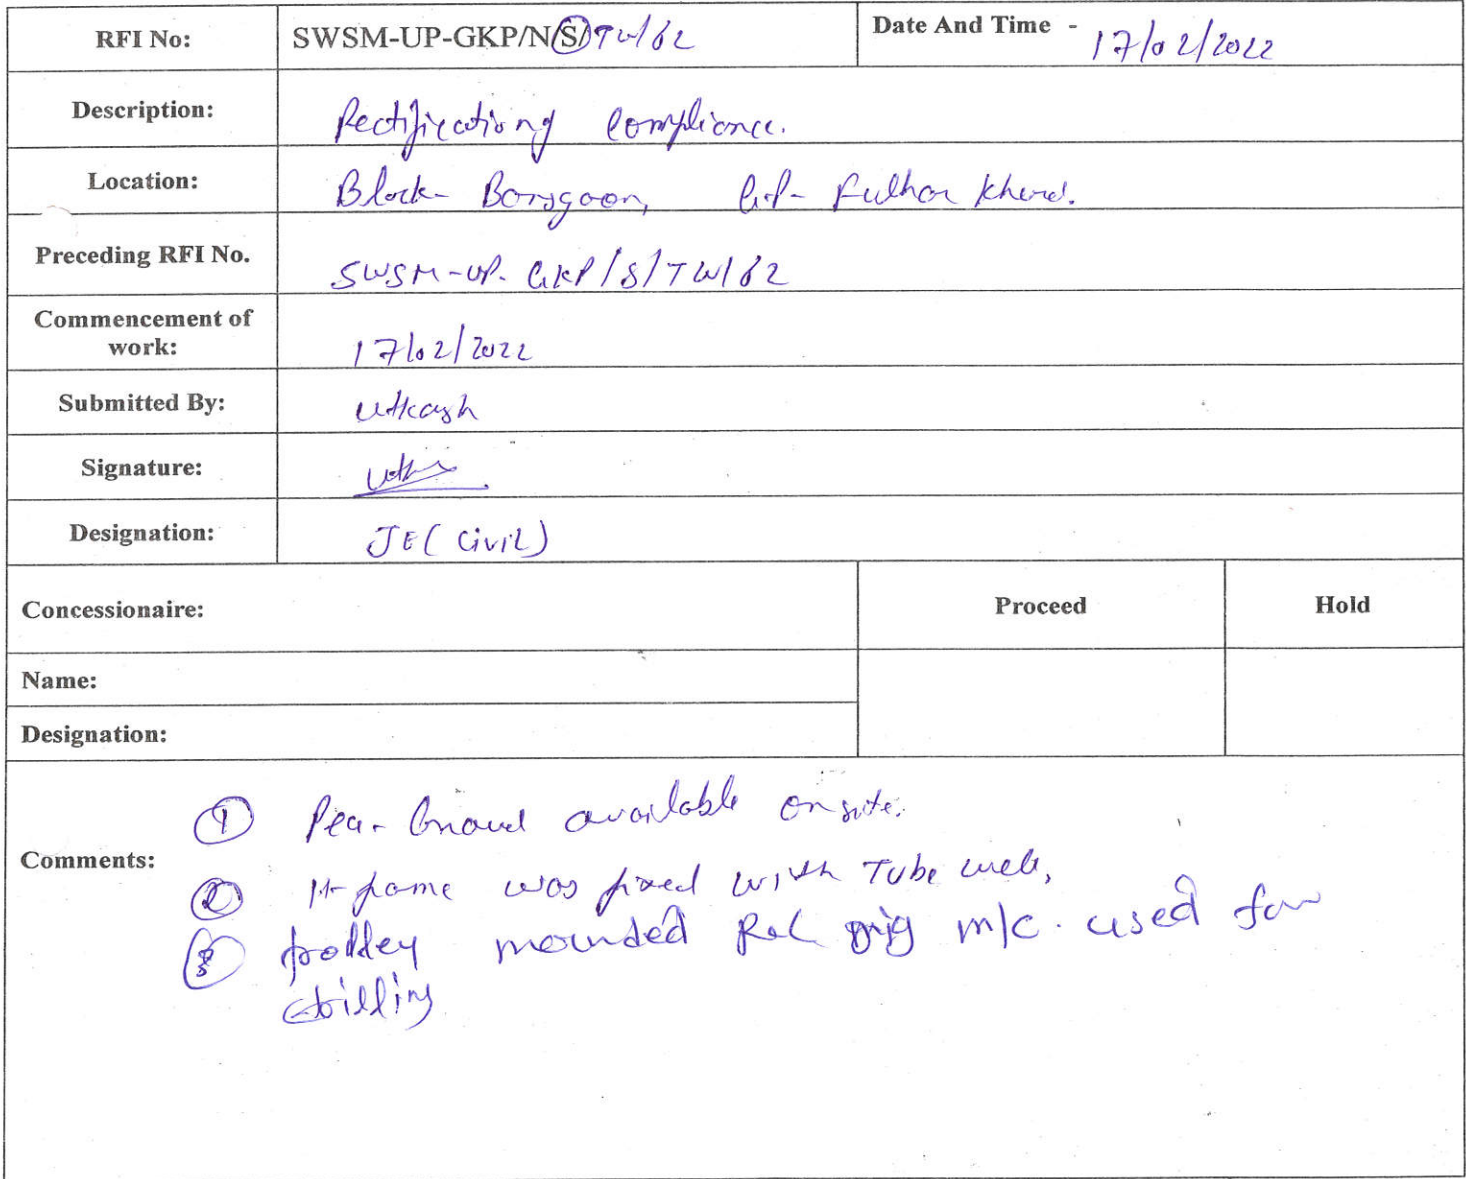 RFI No: SWSM-UP-GKP/N/S/TW/62 Date And Time - 17/02/2022
Description: Rectificationg compliance.
Location: Block- Bargaon, G.P- Fulhar Khurd.
Preceding RFI No. SWSM-UP-GKP/S/TW/62
Commencement of
work: 17/02/2022
Submitted By: Utkarsh
Signature:
Designation: JE (Civil)
Concessionaire: Proceed Hold
Name:
Designation:
① Pea-Gravel available on site.
Comments:
② H-frame was fixed with Tube well,
③ trolley mounded rig m/c. used for
drilling